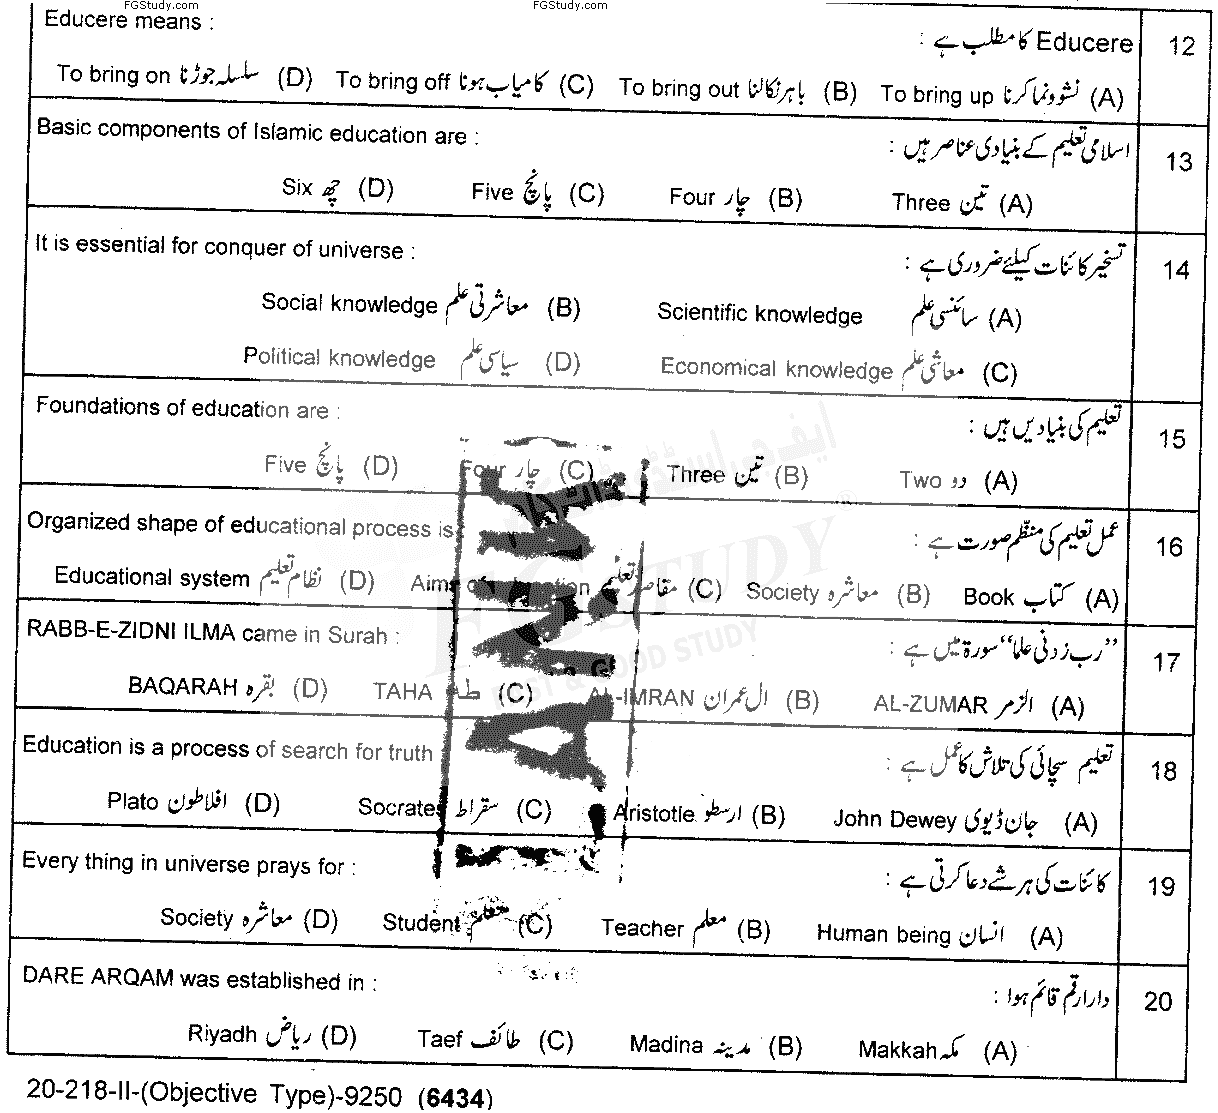 FGStudy.com FGStudy.com
Educere means : Educere کا مطلب ہے : 12
To bring on سلسلہ جوڑنا (D) To bring off کامیاب ہونا (C) To bring out باہر نکالنا (B) To bring up نشوونما کرنا (A)
Basic components of Islamic education are : اسلامی تعلیم کے بنیادی عناصر ہیں : 13
Six چھ (D) Five پانچ (C) Four چار (B) Three تین (A)
It is essential for conquer of universe : تسخیر کائنات کیلئے ضروری ہے : 14
Social knowledge معاشرتی علم (B) Scientific knowledge سائنسی علم (A)
Political knowledge سیاسی علم (D) Economical knowledge معاشی علم (C)
Foundations of education are : تعلیم کی بنیادیں ہیں : 15
Five پانچ (D) Four چار (C) Three تین (B) Two دو (A)
Organized shape of educational process is عمل تعلیم کی منظم صورت ہے : 16
Educational system نظام تعلیم (D) Aims of education مقاصد تعلیم (C) Society معاشرہ (B) Book کتاب (A)
RABB-E-ZIDNI ILMA came in Surah : ”رب زدنی علما“ سورۃ میں ہے : 17
BAQARAH بقرہ (D) TAHA طہٰ (C) AL-IMRAN ال عمران (B) AL-ZUMAR الزمر (A)
Education is a process of search for truth تعلیم سچائی کی تلاش کا عمل ہے : 18
Plato افلاطون (D) Socrates سقراط (C) Aristotle ارسطو (B) John Dewey جان ڈیوی (A)
Every thing in universe prays for : کائنات کی ہر شے دعا کرتی ہے : 19
Society معاشرہ (D) Student متعلم (C) Teacher معلم (B) Human being انسان (A)
DARE ARQAM was established in : دار ارقم قائم ہوا : 20
Riyadh ریاض (D) Taef طائف (C) Madina مدینہ (B) Makkah مکہ (A)
20-218-II-(Objective Type)-9250 (6434)